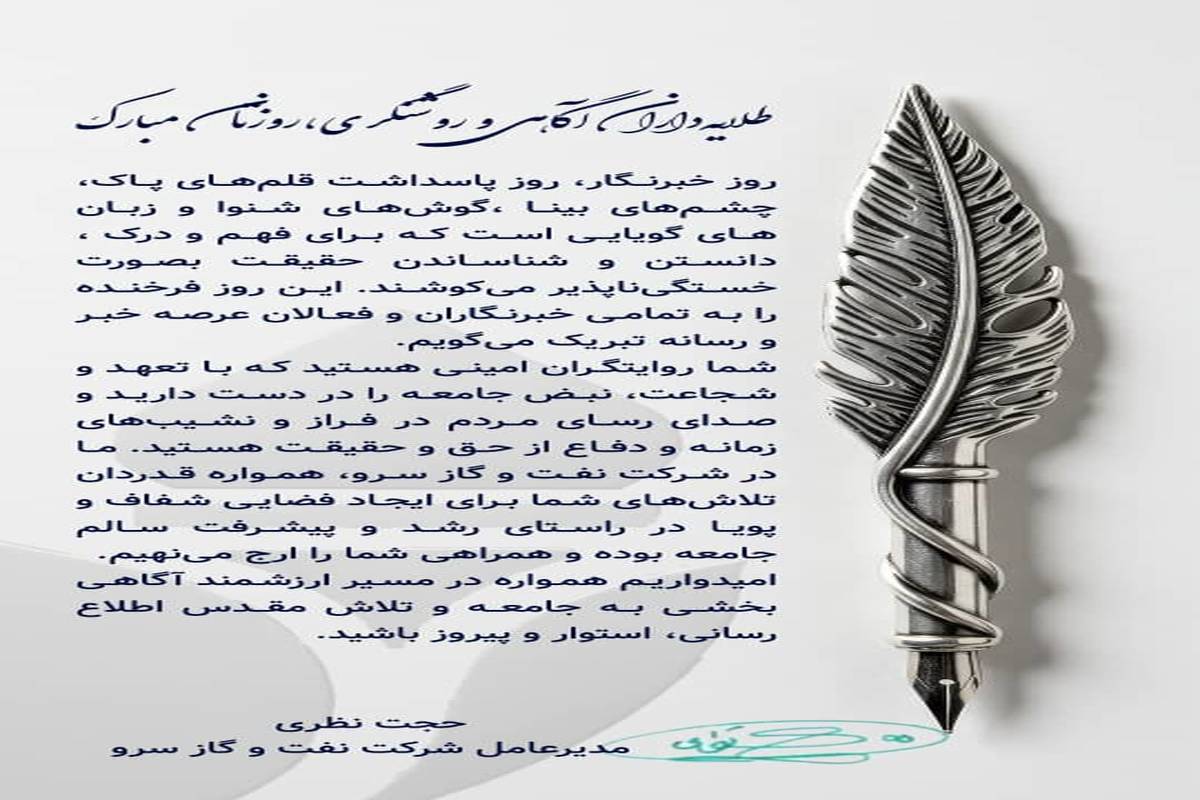 طلایه‌داران آگاهی و روشنگری، روزتان مبارک
روز خبرنگار، روز پاسداشت قلم‌های پاک،
چشم‌های بینا ،گوش‌های شنوا و زبان
های گویایی است که برای فهم و درک ،
دانستن و شناساندن حقیقت بصورت
خستگی‌ناپذیر می‌کوشند. این روز فرخنده
را به تمامی خبرنگاران و فعالان عرصه خبر
و رسانه تبریک می‌گویم.
شما روایتگران امینی هستید که با تعهد و
شجاعت، نبض جامعه را در دست دارید و
صدای رسای مردم در فراز و نشیب‌های
زمانه و دفاع از حق و حقیقت هستید. ما
در شرکت نفت و گاز سرو، همواره قدردان
تلاش‌های شما برای ایجاد فضایی شفاف و
پویا در راستای رشد و پیشرفت سالم
جامعه بوده و همراهی شما را ارج می‌نهیم.
امیدواریم همواره در مسیر ارزشمند آگاهی
بخشی به جامعه و تلاش مقدس اطلاع
رسانی، استوار و پیروز باشید.
حجت نظری
مدیرعامل شرکت نفت و گاز سرو